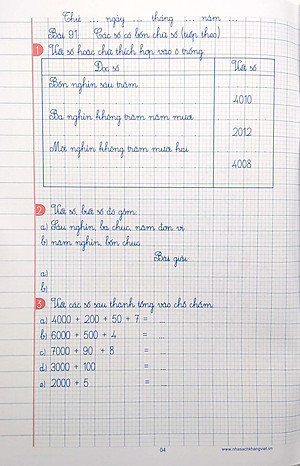 Thứ ... ngày ... tháng ... năm ...
Bài 91. Các số có bốn chữ số (tiếp theo)
1 Viết số hoặc chữ thích hợp vào ô trống:
Đọc số Viết số
Bốn nghìn sáu trăm
4010
Ba nghìn không trăm năm mươi
2012
Một nghìn không trăm mười hai
4008
2 Viết số, biết số đó gồm:
a) Sáu nghìn, ba chục, năm đơn vị
b) năm nghìn, bốn chục
Bài giải
a)
b)
3 Viết các số sau thành tổng vào chỗ chấm:
a) 4000 + 200 + 50 + 7 = ...
b) 6000 + 500 + 4 = ...
c) 7000 + 90 + 8 = ...
d) 3000 + 100 = ...
e) 2000 + 5 = ...
04
www.nhasachkhangviet.vn